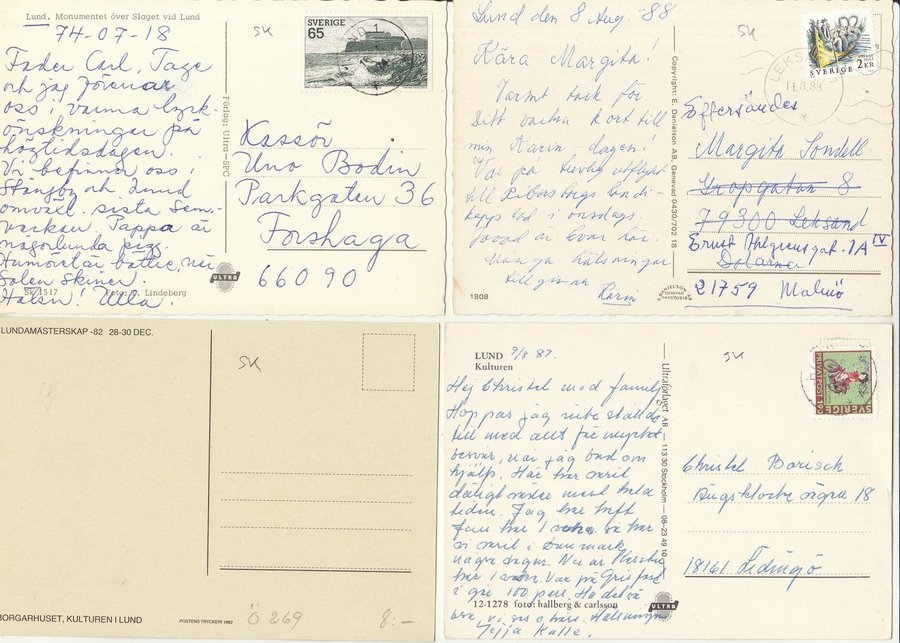 Lund. Monumentet över Slaget vid Lund
74-07-18
Fader Carl, Tage
och jag förenar
oss i varma lyck
önskningar på
högtidsdagen.
Vi befinner oss i
Stångby och Lund
omväxl. sista sem-
veckan. Pappa är
någorlunda pigg.
Humöret är bättre, när
Solen Skiner.
Hälsn! Ulla.
SK 1517 Foto: Lindeberg
Förlag: Ultra-SPC
ULTRA
SK
SVERIGE
65
LUND 1
Kassör
Uno Bodin
Parkgatan 36
Forshaga
66090
Lund den 8 Aug. -88
Kära Margita!
Varmt tack för
Ditt vackra kort till
min Karin-dagen!
Var på trevlig utflykt
till Ribersborgs handi-
kapps bad i onsdags.
är kvar här.
Många hälsningar
till
Karin
1808
Copyright: E. Danielson AB, Genevad 0430/702 18
E. DANIELSON AB
GENEVAD
SK
SVERIGE 2 KR
LEKSAND
11.8.88
Eftersändes
Margita Sondell
Gropgatan 8
79300 Leksand
Ernst Ahlgrensgat. 1A IV
21759 Malmö
LUNDAMÄSTERSKAP -82 28-30 DEC.
SK
BORGARHUSET, KULTUREN I LUND
POSTENS TRYCKERI 1982
Ö 269
8:-
LUND 9/8 87.
Kulturen
Hej Christel med familj
Hoppas jag inte ställde
till med allt för mycket
besvär, när jag bad om
hjälp. Här har varit
dåligt väder mest hela
tiden. Jag har haft
här 1 vecka så har
vi varit i Danmark
några dagar. Nu är
här 1 Var på
i går 100 pers. Ha det så
bra, vi ses i höst. Hälsningar
Kalle.
12-1278 foto: hallberg & carlsson
Ultraförlaget AB — 113 30 Stockholm — 08-23 49 10
ULTRA
SK
PRIVATPOST
SVERIGE
Christel Borisch
Ängsklockevägen 18
18161 Lidingö